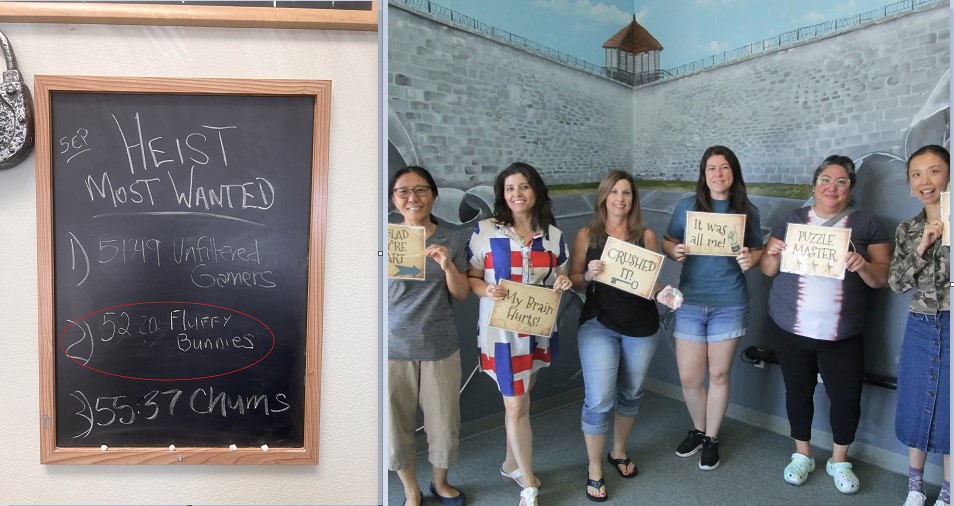 SEP
HEIST
MOST WANTED
1) 51:49 Unfiltered
Gamers
2) 52:20 FLUFFY
BUNNIES
3) 55:37 Chums
GLAD
RE
ART
My Brain
Hurts!
CRUSHED
IT!
It was
all me!
PUZZLE
MASTER